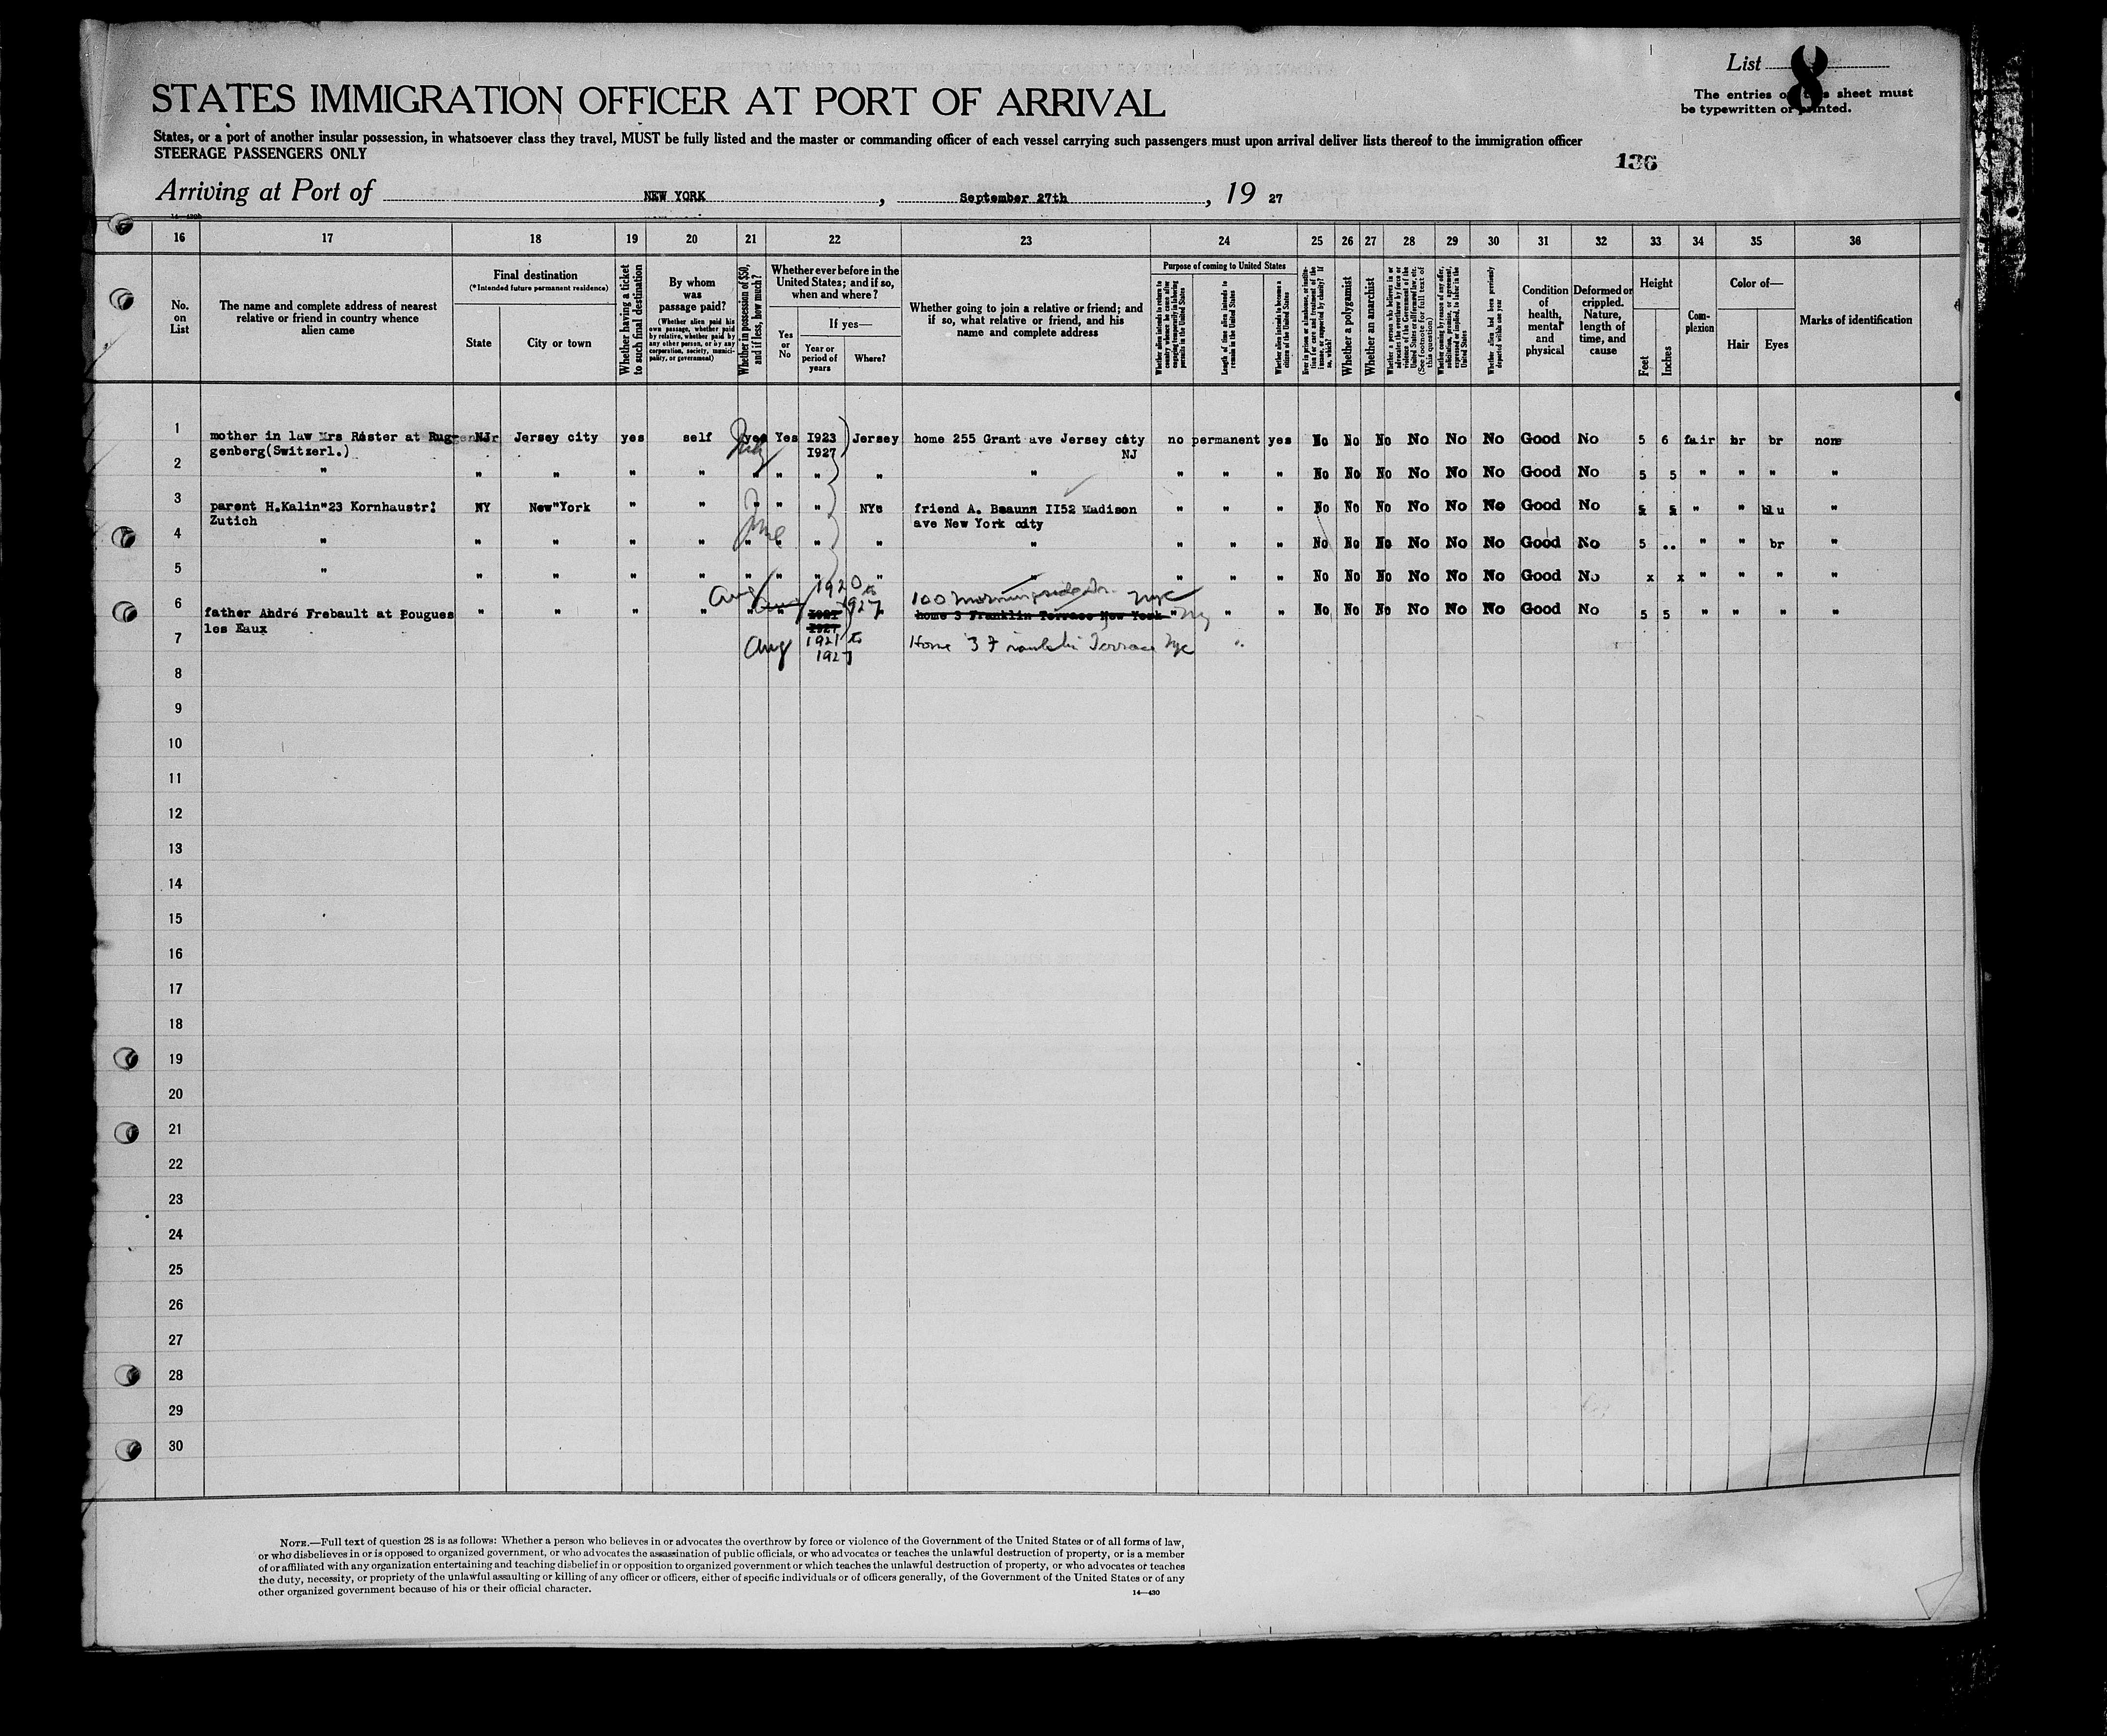 List 8
The entries on this sheet must
be typewritten or printed.
STATES IMMIGRATION OFFICER AT PORT OF ARRIVAL
States, or a port of another insular possession, in whatsoever class they travel, MUST be fully listed and the master or commanding officer of each vessel carrying such passengers must upon arrival deliver lists thereof to the immigration officer
STEERAGE PASSENGERS ONLY
136
Arriving at Port of NEW YORK, September 27th, 19 27
16 17 18 19 20 21 22 23 24 25 26 27 28 29 30 31 32 33 34 35 36
No.
on
List
The name and complete address of nearest
relative or friend in country whence
alien came
Final destination
(*Intended future permanent residence)
State
City or town
Whether having a ticket
to such final destination
By whom
was
passage paid?
(Whether alien paid his
own passage, whether paid
by relative, whether paid by
any other person, or by any
corporation, society, munici-
pality, or government)
Whether in possession of $50,
and if less, how much?
Whether ever before in the
United States; and if so,
when and where?
Yes
or
No
If yes—
Year or
period of
years
Where?
Whether going to join a relative or friend; and
if so, what relative or friend, and his
name and complete address
Purpose of coming to United States
Whether alien intends to return to
country whence he came after
engaging temporarily in laboring
pursuits in the United States
Length of time alien intends to
remain in the United States
Whether alien intends to become a
citizen of the United States
Ever in prison or almshouse, or institu-
tion for care and treatment of the
insane, or supported by charity? If
so, which?
Whether a polygamist
Whether an anarchist
Whether a person who believes in or
advocates the overthrow by force or
violence of the Government of the
United States or all forms of law, etc.
(See footnote for full text of
this question)
Whether coming by reason of any offer,
solicitation, promise, or agreement,
expressed or implied, to labor in the
United States
Whether alien had been previously
deported within one year
Condition
of
health,
mental
and
physical
Deformed or
crippled.
Nature,
length of
time, and
cause
Height
Feet
Inches
Com-
plexion
Color of—
Hair
Eyes
Marks of identification
1 mother in law Mrs Rister at Rug- NJ Jersey city yes self yes Yes I923 Jersey home 255 Grant ave Jersey city no permanent yes No No No No No No Good No 5 6 fair br br none
genberg(Switzerl.) July I927 NJ
2 " " " " " " " " " " " " " No No No No No No Good No 5 5 " " " "
3 parent H.Kalin"23 Kornhaustr: NY New"York " " " " " NYc friend A. Beaunn II52 Madison " " " No No No No No No Good No 5 5 " " blu "
Zutich June ave New York city
4 " " " " " " " " " " " " " No No No No No No Good No 5 .. " " br "
5 " " " " " " " " " " " " " No No No No No No Good No x x " " " "
Aug 1920 to 1927 100 Morningside Dr. nyc
6 father André Frebault at Pougues " " " " " " I921 " home 3 Franklin Terrace New York " " " No No No No No No Good No 5 5 " " " "
les Eaux I927
7 Aug 1921 to Home 3 Franklin Terrace Nyc "
1927
8
9
10
11
12
13
14
15
16
17
18
19
20
21
22
23
24
25
26
27
28
29
30
NOTE.—Full text of question 28 is as follows: Whether a person who believes in or advocates the overthrow by force or violence of the Government of the United States or of all forms of law,
or who disbelieves in or is opposed to organized government, or who advocates the assassination of public officials, or who advocates or teaches the unlawful destruction of property, or is a member
of or affiliated with any organization entertaining and teaching disbelief in or opposition to organized government or which teaches the unlawful destruction of property, or who advocates or teaches
the duty, necessity, or propriety of the unlawful assaulting or killing of any officer or officers, either of specific individuals or of officers generally, of the Government of the United States or of any
other organized government because of his or their official character.
14—430